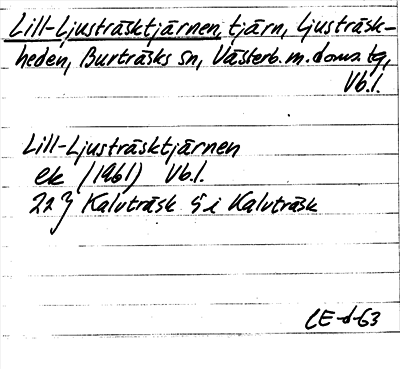 Lill-Ljusträsktjärnen, tjärn, Ljusträsk-
heden, Burträsks sn, Västerb. m. doms. tg,
Vb. l.
Lill-Ljusträsktjärnen
ek (1961) Vb. l.
22 J Kalvträsk 5 i Kalvträsk